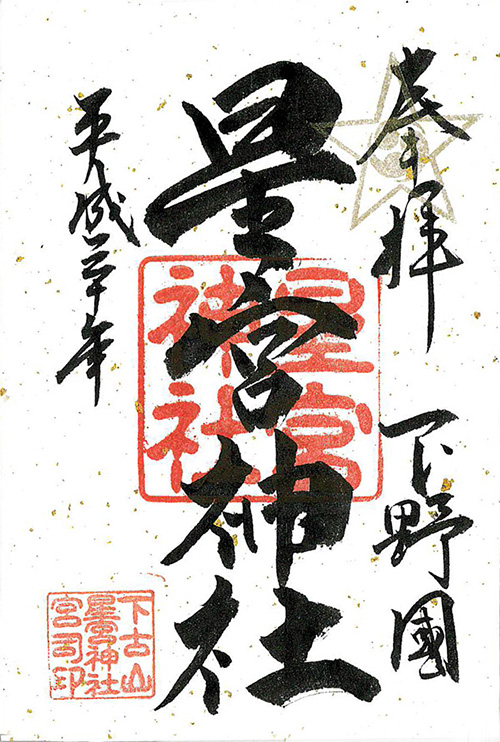 奉拝 下野國
星宮神社
平成三十年
星宮
神社
下古山
星宮神社
宮司印